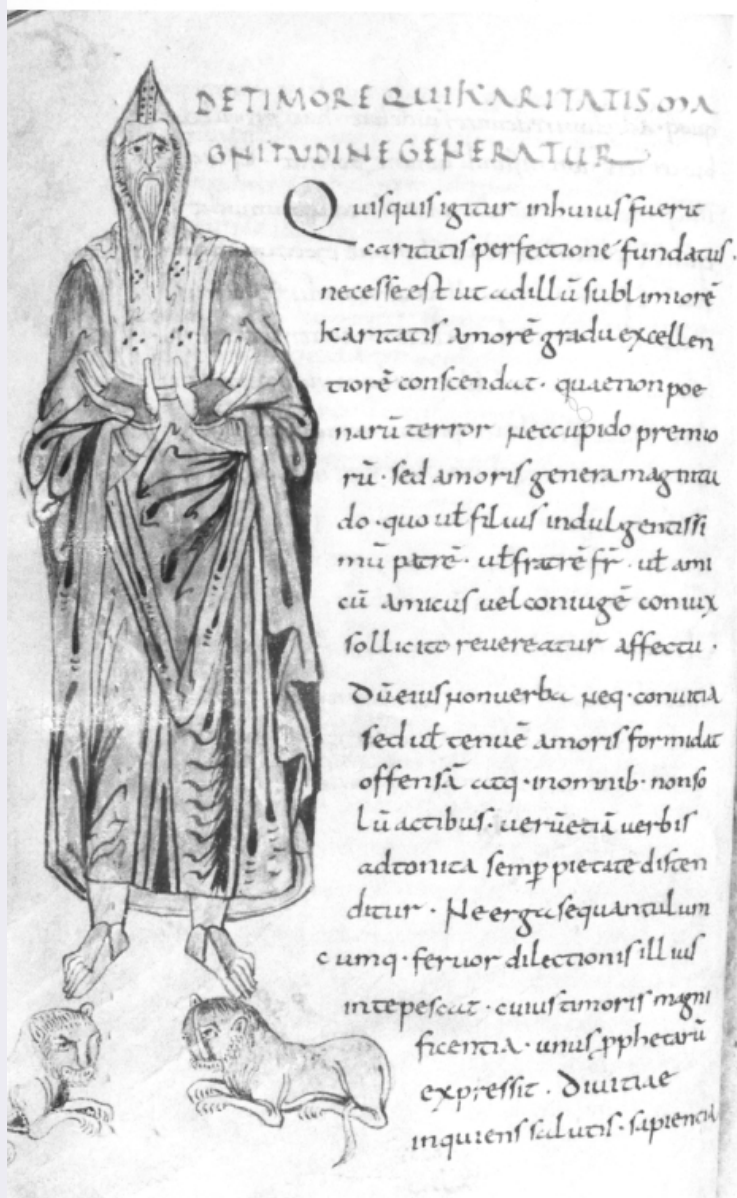 DETIMORE QUI KARITATIS MA
GNITUDINE GENERATUR
Quisquis igitur inhuius fuerit
caritatis perfectione fundatus.
necesse est ut adillū sublimiorē
karitatis amorē gradu excellen
tiorē conscendat· quae non poe
narū terror neccupido premio
rū· sed amoris genera magnitu
do· quo uł filius indulgentissi
mū patrē· uł fratrē fr̄· uł ami
cū amicus uel coniugē coniux
sollicito reuereatur affectu·
Dū eius non uerba neq· conuitia
sed uł tenuē amoris formidat
offensā atq· inomnib· nonso
lū actibus· uerū etiā uerbis
adtonita semꝑ pietate disten
ditur· Ne erga se quantulum
cumq· feruor dilectionis illius
intepescat· cuius timoris magni
ficentia· unus ꝓphetarū
expressit· Diuitiae
inquiens salutis· sapientia